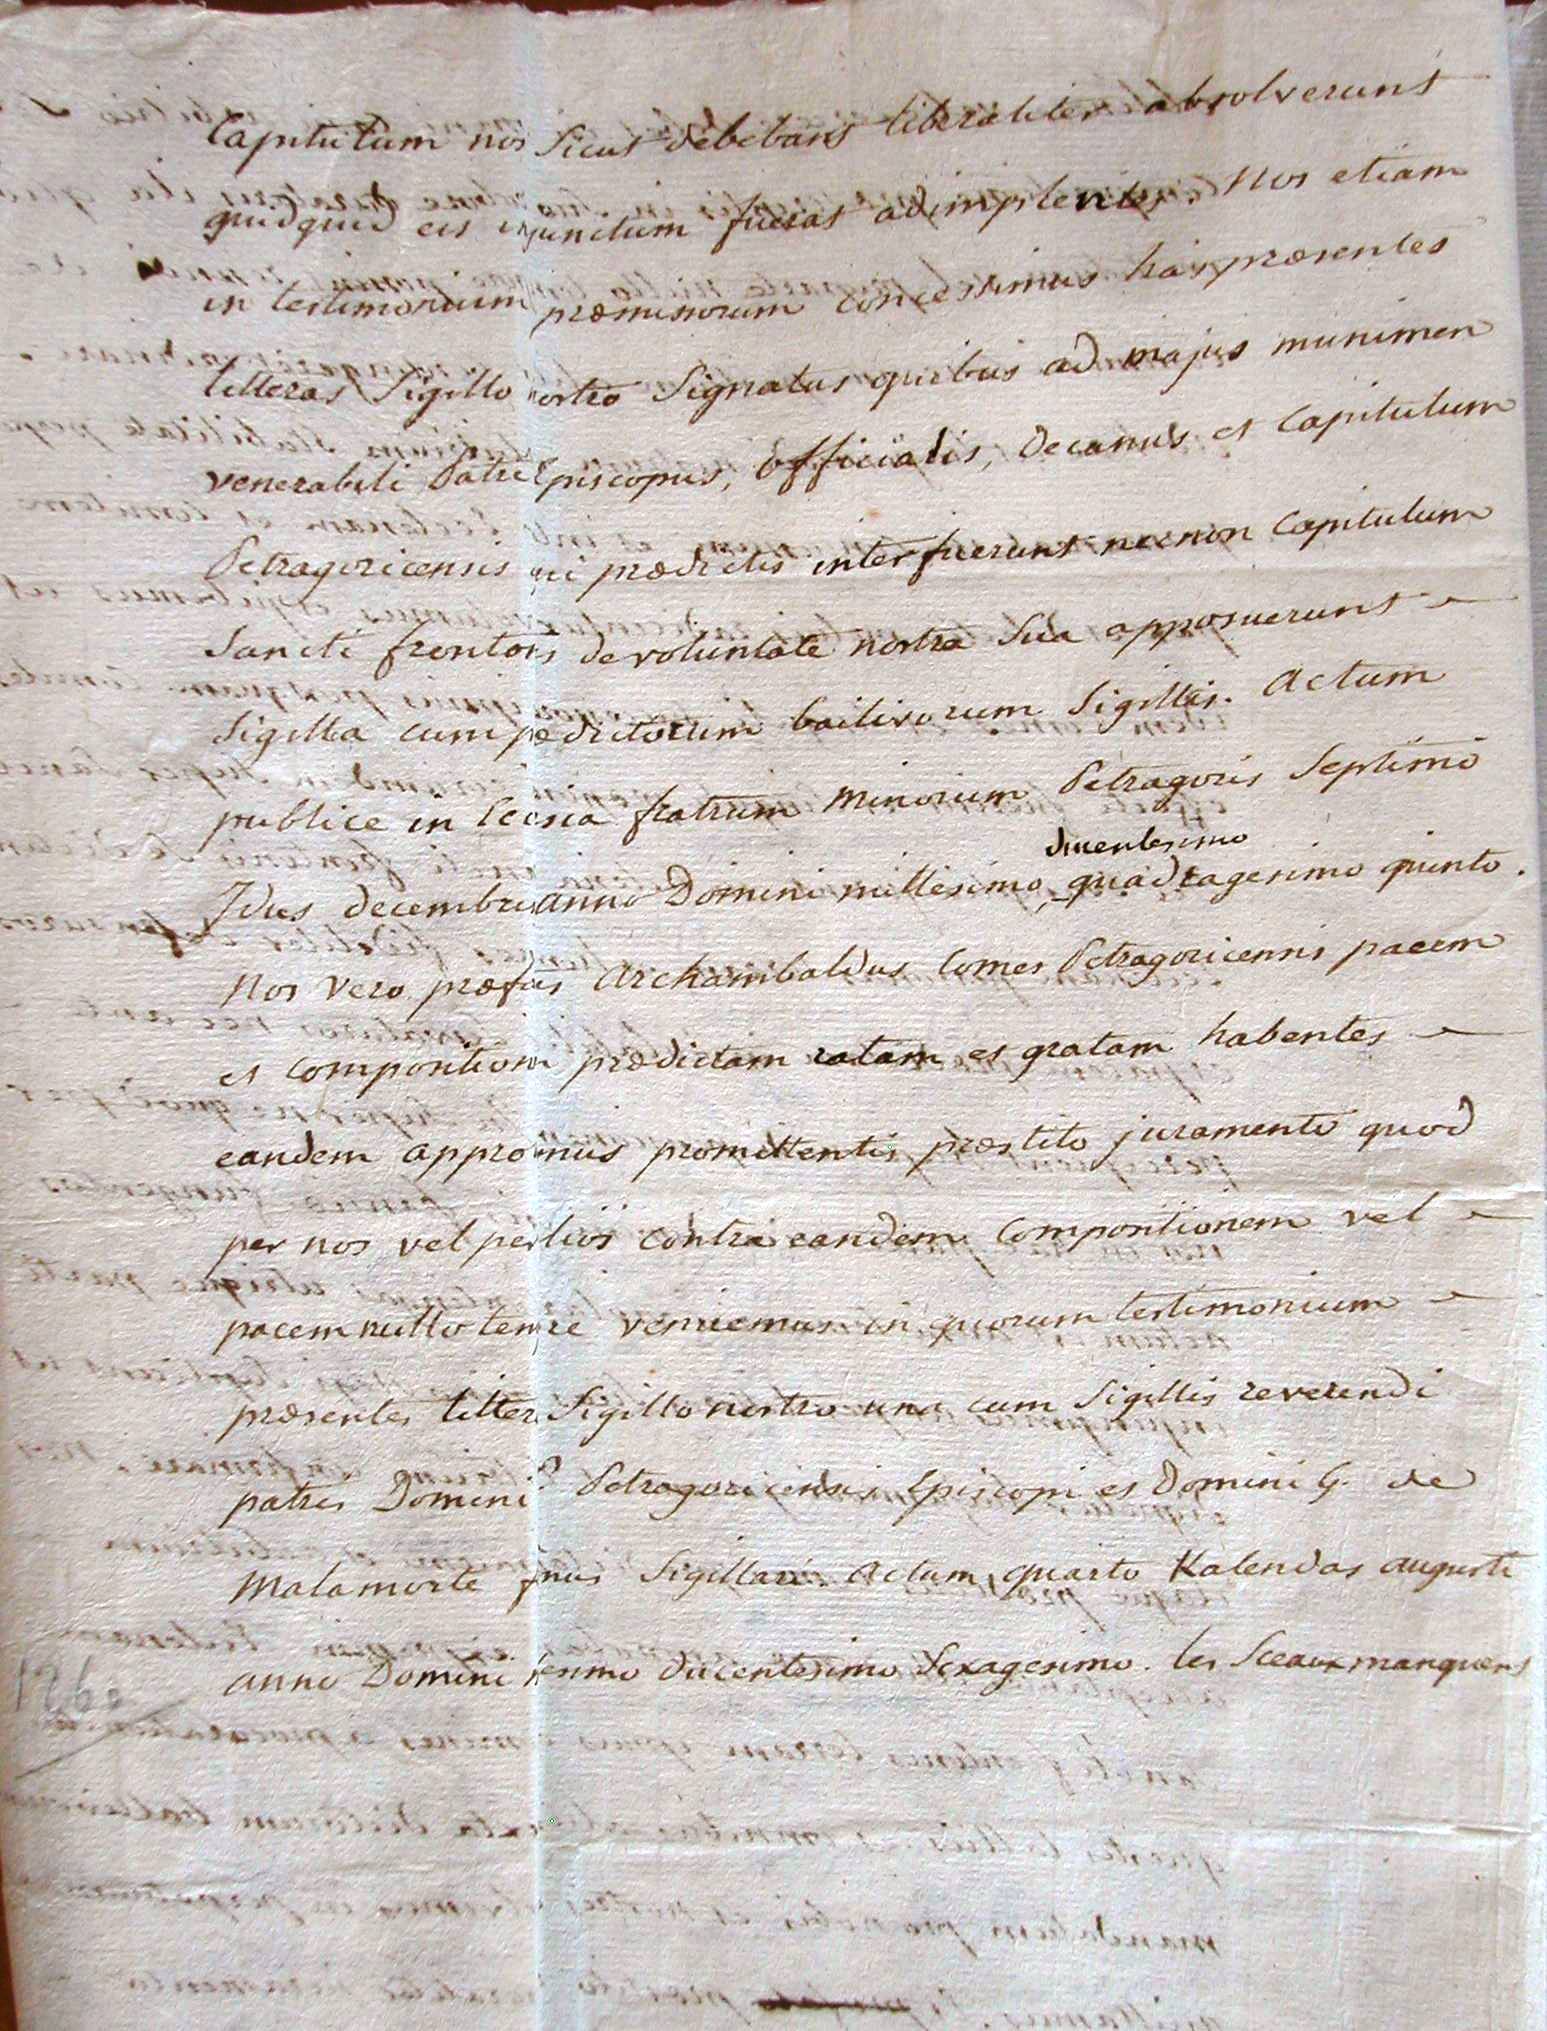 Capitulum nos sicut debebant liberaliter absolverunt
quidquid eis injunctum fuerat adimplentes. Nos etiam
in testimonium præmissorum concessimus has præsentes
litteras sigillo nostro signatas quibus ad majus munimen
venerabili Patre Episcopus, officialis, decanus et Capitulum
Petragoricensis qui prædictis interfuerunt necnon Capitulum
Sancti frontonis de voluntate nostra sua apposuerunt
sigilla cum prædictorum bailivorum sigillis. Actum
publice in Eccesia fratrum minorum Petragoris septimo
ducentesimo
Idus decembris anno Domini millesimo, quadragesimo quinto.
Nos vero præfatus Archambaldus Comes Petragoricensis pacem
et compositionem prædictam ratam et gratam habentes
eandem approbamus promittentis præstito juramento quod
per nos vel per alios contra eandem compositionem vel
pacem nullo tempore veniemus in quorum testimonium
præsentes litteras sigillo nostro una cum sigillis reverendi
patris Domini P. Petragoricensis Episcopi et Domini G. de
Malamorte fecimus sigillari. Actum, quarto Kalendas augusti
anno Domini millesimo ducentesimo sexagesimo. les Sceaux manquent
1260